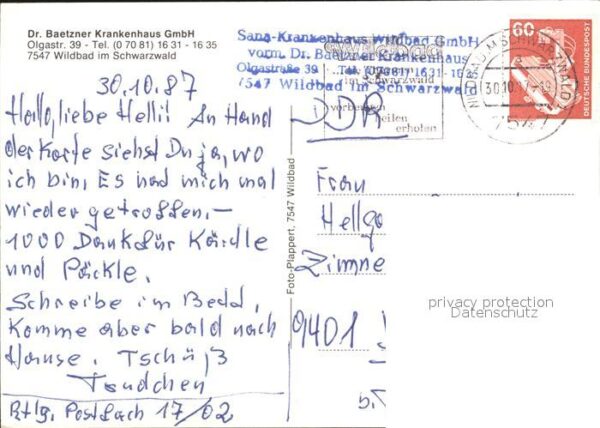 Dr. Baetzner Krankenhaus GmbH
Olgastr. 39 - Tel. (0 70 81) 16 31 - 16 35
7547 Wildbad im Schwarzwald
Sana-Krankenhaus Wildbad GmbH
vorm. Dr. Baetzner Krankenhaus
Olgastraße 39 Tel. (07081) 1631-16
7547 Wildbad im Schwarzwald
Wildbad
im Schwarzwald
vorbeugen
heilen
erholen
60
DEUTSCHE BUNDESPOST
WILDBAD IM SCHWARZWALD
30.10.87-19
7547
30.10.87
Hallo, liebe Helli! An Hand
der Karte siehst Du ja, wo
ich bin, Es had mich mal
wieder getroffen.-
1000 Dank für Kärdle
und Päckle.
Schreibe im Bedd,
Komme aber bald nach
Hause. Tschüß
Trudchen
Rtlg. Postfach 17/02
Foto-Plappert, 7547 Wildbad
DDR
Frau
Helga
Zimne
9401
b.
privacy protection
Datenschutz